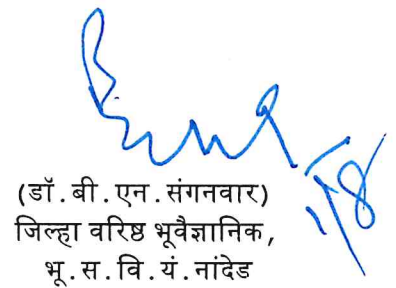 (डॉ.बी.एन.संगनवार)
जिल्हा वरिष्ठ भूवैज्ञानिक,
भू.स.वि.यं.नांदेड